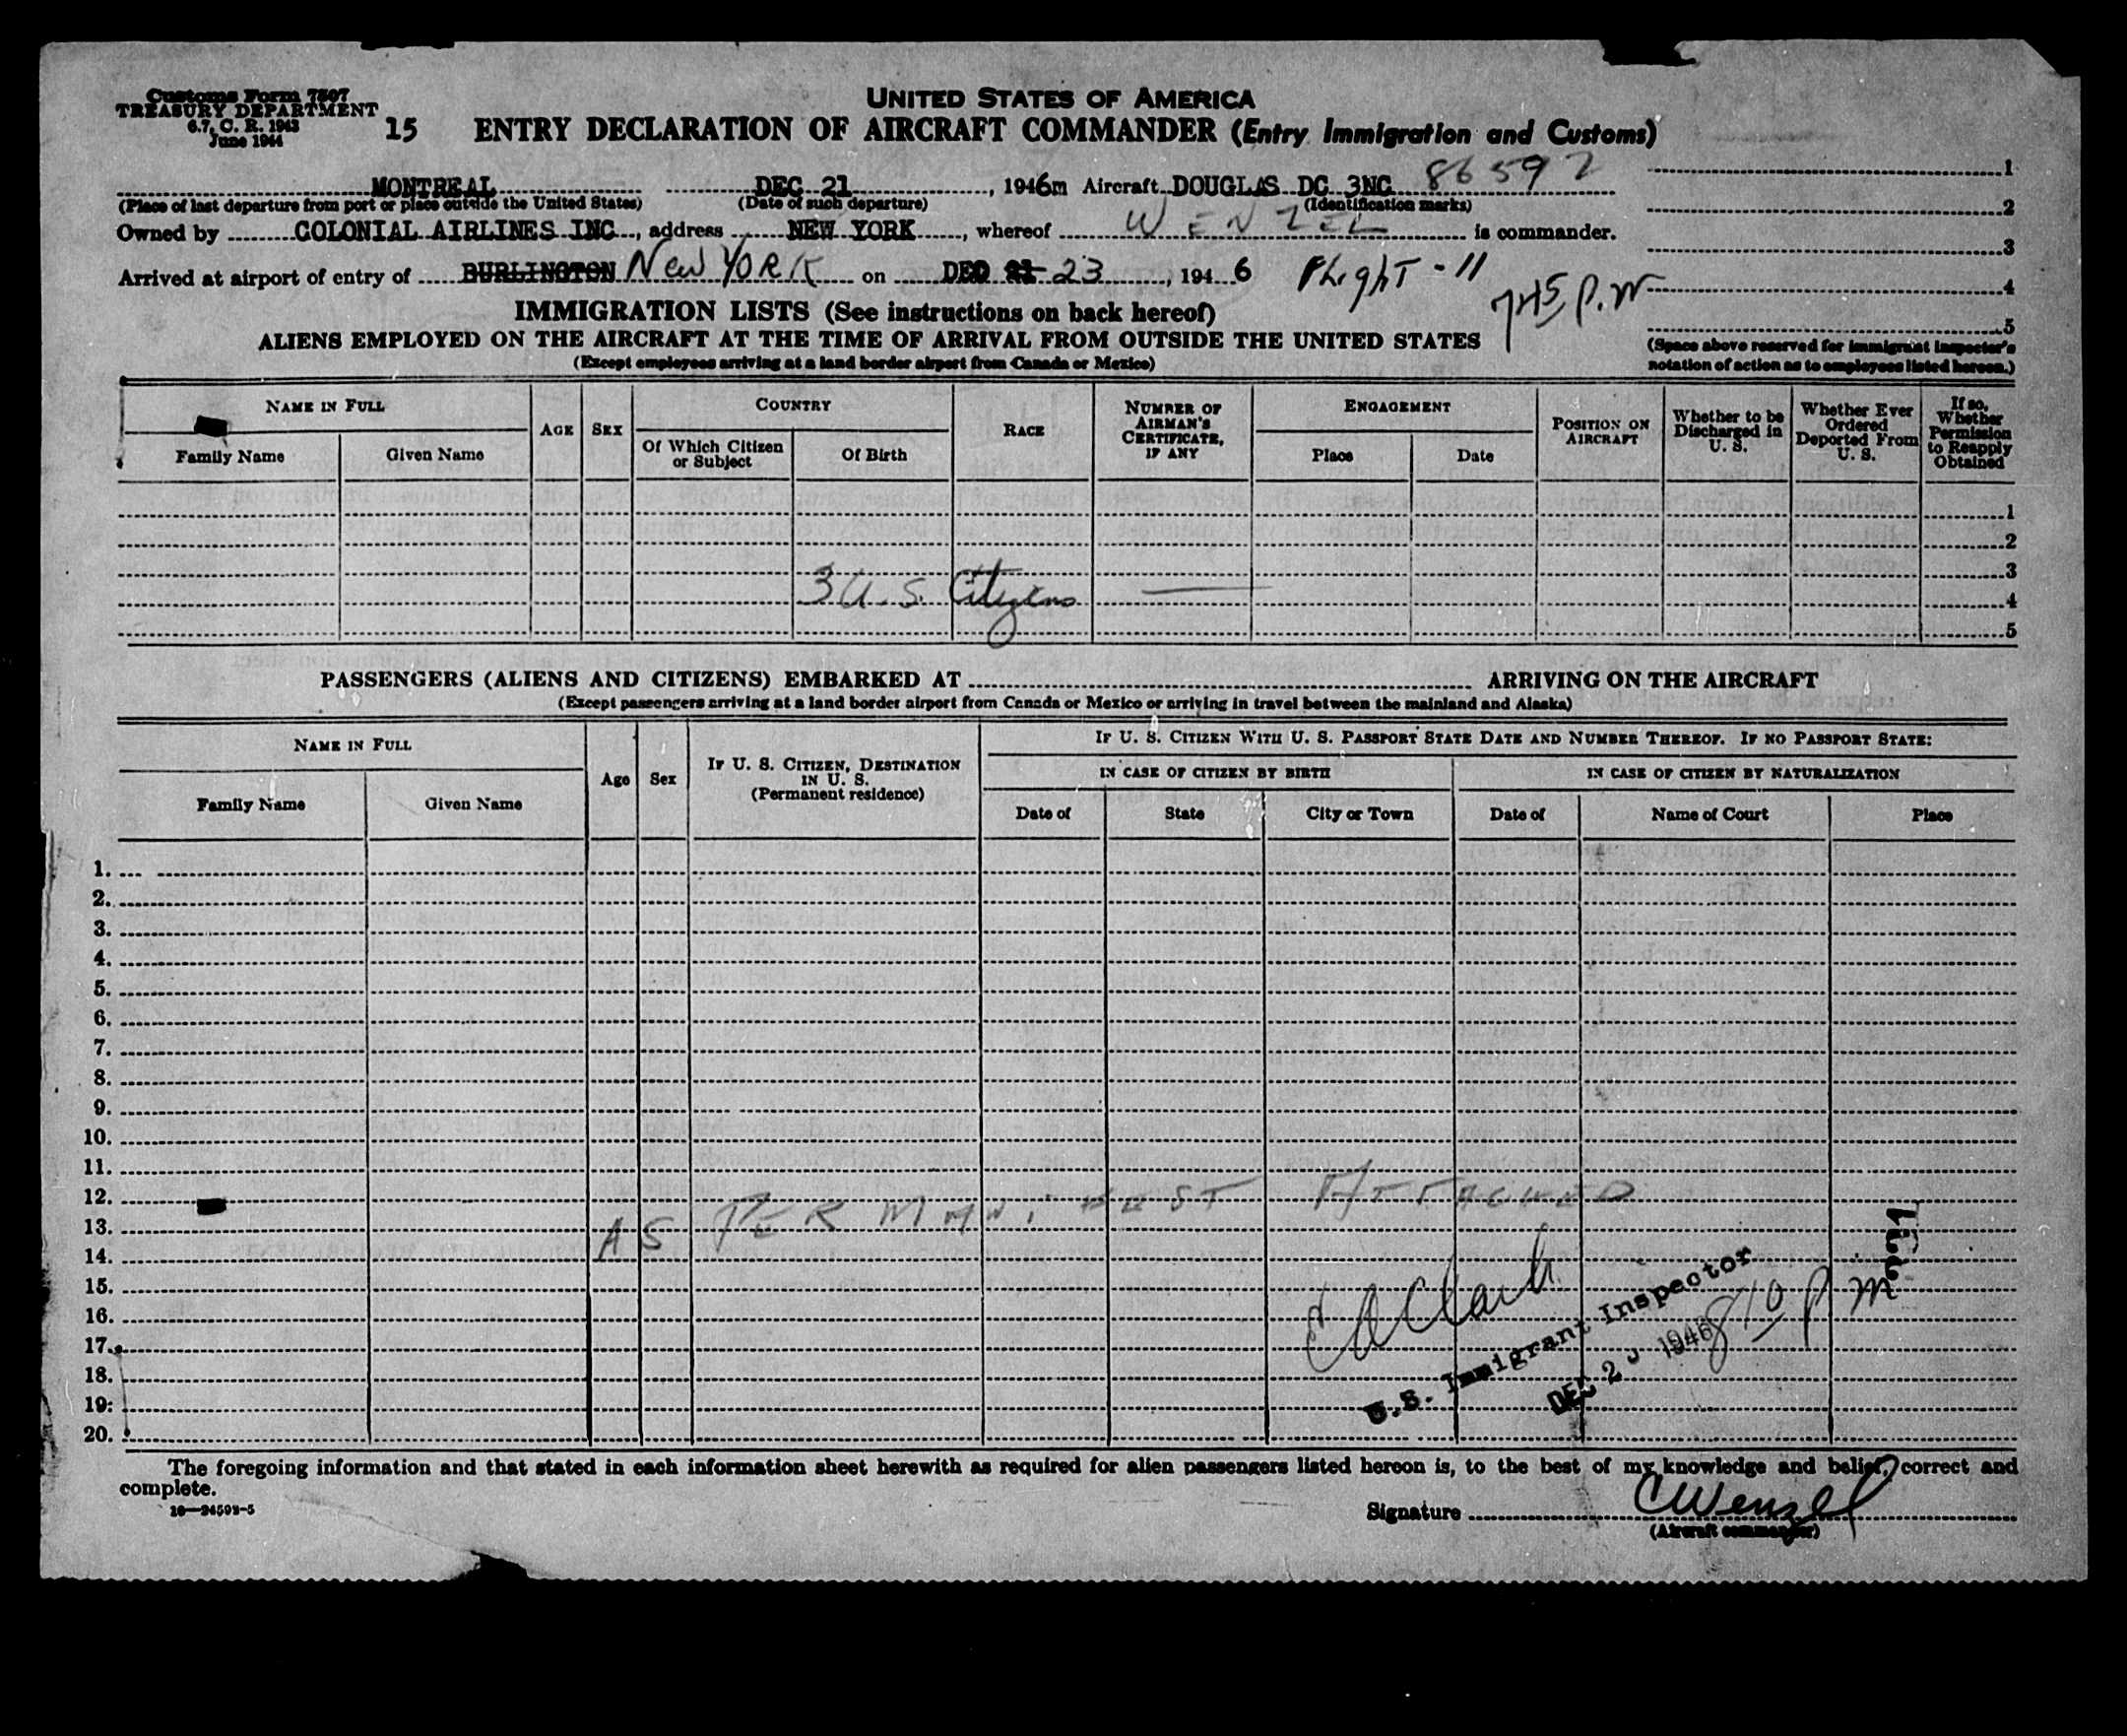 Customs Form 7507
TREASURY DEPARTMENT
6.7, C. R. 1943
June 1944
15
UNITED STATES OF AMERICA
ENTRY DECLARATION OF AIRCRAFT COMMANDER (Entry Immigration and Customs)
MONTREAL DEC 21, 1946m Aircraft DOUGLAS DC 3NC 86592
(Place of last departure from port or place outside the United States) (Date of such departure) (Identification marks)
Owned by COLONIAL AIRLINES INC, address NEW YORK, whereof WENZEL is commander.
Arrived at airport of entry of BURLINGTON New YORK on DEC 21 23, 194 6 Flight - 11
745 P.M
1
2
3
4
5
(Space above reserved for immigrant inspector's
notation of action as to employees listed hereon.)
IMMIGRATION LISTS (See instructions on back hereof)
ALIENS EMPLOYED ON THE AIRCRAFT AT THE TIME OF ARRIVAL FROM OUTSIDE THE UNITED STATES
(Except employees arriving at a land border airport from Canada or Mexico)
NAME IN FULL
Family Name
Given Name
AGE
SEX
COUNTRY
Of Which Citizen
or Subject
Of Birth
RACE
NUMBER OF
AIRMAN'S
CERTIFICATE,
IF ANY
ENGAGEMENT
Place
Date
POSITION ON
AIRCRAFT
Whether to be
Discharged in
U. S.
Whether Ever
Ordered
Deported From
U. S.
If so,
Whether
Permission
to Reapply
Obtained
1
2
3
3 U. S. Citizens
4
5
PASSENGERS (ALIENS AND CITIZENS) EMBARKED AT ARRIVING ON THE AIRCRAFT
(Except passengers arriving at a land border airport from Canada or Mexico or arriving in travel between the mainland and Alaska)
NAME IN FULL
Family Name
Given Name
Age
Sex
IF U. S. CITIZEN, DESTINATION
IN U. S.
(Permanent residence)
IF U. S. CITIZEN WITH U. S. PASSPORT STATE DATE AND NUMBER THEREOF. IF NO PASSPORT STATE:
IN CASE OF CITIZEN BY BIRTH
IN CASE OF CITIZEN BY NATURALIZATION
Date of
State
City or Town
Date of
Name of Court
Place
1.
2.
3.
4.
5.
6.
7.
8.
9.
10.
11.
12.
13.
AS PER MANIFEST ATTACHED
14.
15.
16.
17.
18.
19.
20.
221
E A Clark
810 P M
U.S. Immigrant Inspector
DEC 2 1946
The foregoing information and that stated in each information sheet herewith as required for alien passengers listed hereon is, to the best of my knowledge and belief, correct and
complete.
16—24593-5
Signature CWenzel
(Aircraft commander)